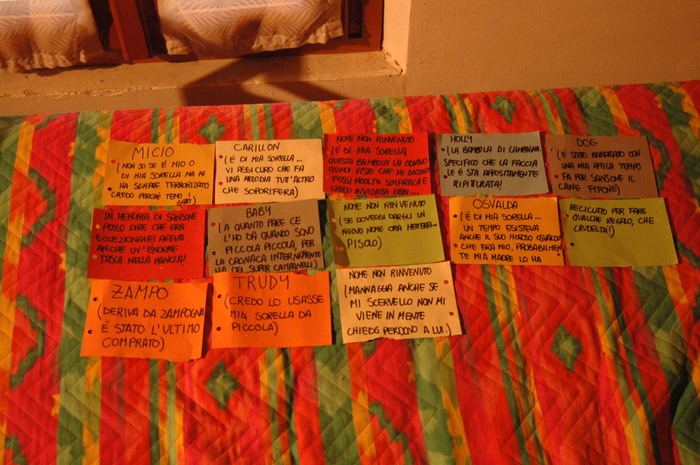 MICIO
NON SO SE È MIO O
DI MIA SORELLA MA MI
HA SEMPRE TERRORIZZATO
CREDO PERCHÉ TEMO I
CARILLON
(É DI MIA SORELLA...
VI ASSICURO CHE FA
UNA MELODIA TUTT'ALTRO
CHE SOPORIFERA)
NOME NON RINVENUTO
(É DI MIA SORELLA
QUESTA BAMBOLA LA ODIAVO
QUINDI VISTO CHE MI DICONO
FOSSI MOLTO SIMPATICA E
CREDO INVIDIA EBBI...
HOLLY
(LA BAMBOLA DI CAMPAGNA,
SPECIFICO CHE LA FACCIA
LE È STA APPOSITAMENTE
RIPITURATA!)
DOG
(É STATO BARATTATO CON
UNA MIA AMICA TEMPO
FA PER SANSONE IL
CANE FIFONE)
IN MEMORIA DI SANSONE
POSSO DIRE CHE ERA
ECCEZIONALE! AVEVA
ANCHE UN'ENORME
TASCA NELLA PANCIA!
BABY
(A QUANTO PARE CE
L'HO DA QUANDO SONO
PICCOLA PICCOLA, PER
LA CRONACA INTERNAMENTE
HA DEI SUPER CAMPANELLI)
NOME NON RINVENUTO
(SE DOVESSI DARGLI UN
NUOVO NOME ORA METTEREI...
PISOLO)
OSVALDA
(É DI MIA SORELLA...
UN TEMPO ESISTEVA
ANCHE IL SUO MOROSO OSVALDO
CHE ERA MIO, PROBABILMEN
TE MIA MADRE LO HA
RICICLATO PER FARE
QUALCHE REGALO, CHE
CRUDELTÀ!)
ZAMPO
(DERIVA DA ZAMPOGNA
É STATO L'ULTIMO
COMPRATO)
TRUDY
(CREDO LO USASSE
MIA SORELLA DA
PICCOLA)
NOME NON RINVENUTO
(MANNAGGIA ANCHE SE
MI SCERVELLO NON MI
VIENE IN MENTE
CHIEDO PERDONO A LUI.)